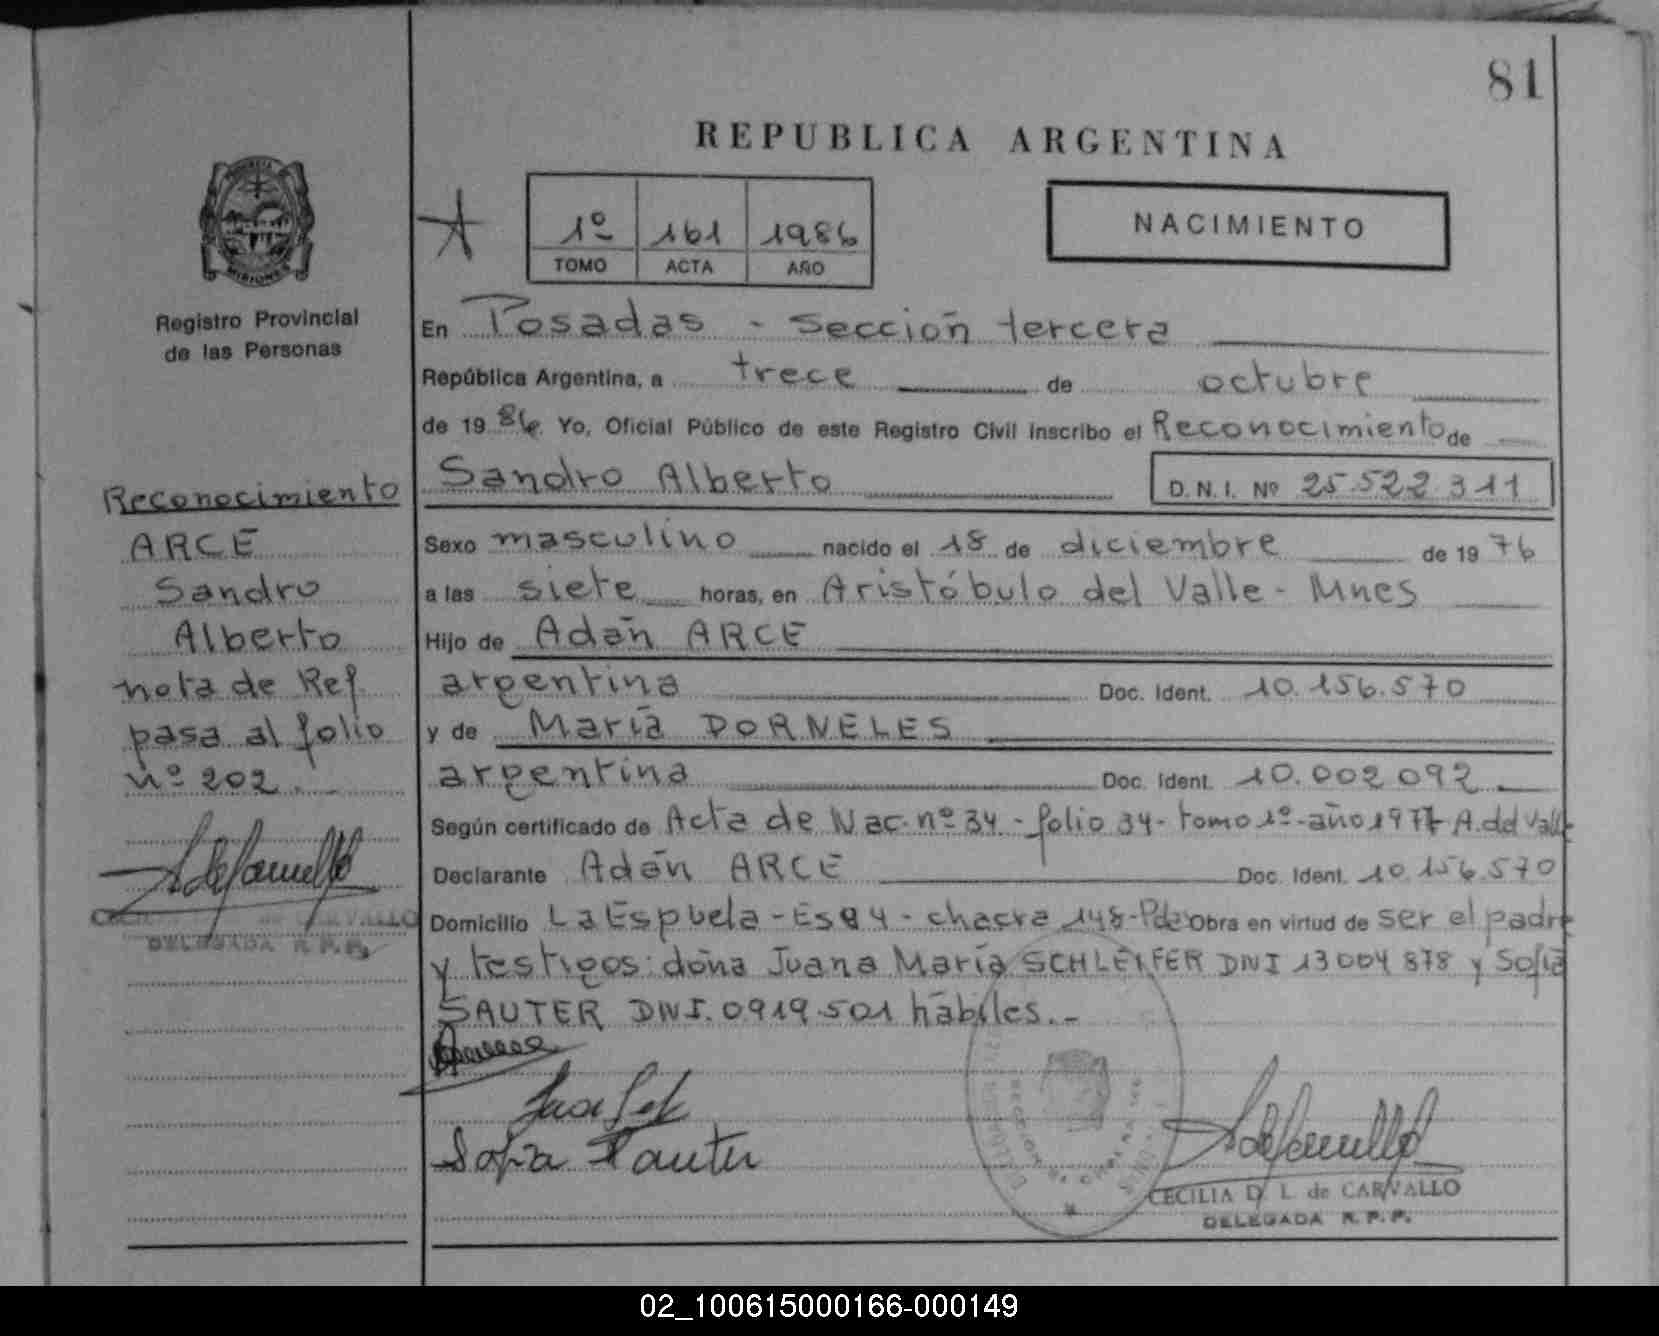 81
REPUBLICA ARGENTINA
1º 161 1986
TOMO ACTA AÑO
NACIMIENTO
MISIONES
Registro Provincial
de las Personas
Reconocimiento
ARCE
Sandro
Alberto
nota de Ref.
pasa al folio
nº 202.
DELEGADA R.P.P.
En Posadas - Sección tercera
República Argentina, a trece de octubre
de 1986. Yo, Oficial Público de este Registro Civil inscribo el Reconocimiento de
Sandro Alberto D.N.I. Nº 25.522.311
Sexo masculino nacido el 18 de diciembre de 1976
a las siete horas, en Aristóbulo del Valle - Mnes
Hijo de Adán ARCE
argentina Doc. Ident. 10.156.570
y de María DORNELES
argentina Doc. Ident. 10.002.092
Según certificado de Acta de Nac. nº 34 - folio 34 - tomo 1º - año 1977 A. del Valle
Declarante Adán ARCE Doc. Ident. 10.156.570
Domicilio La Espuela - Es 94 - chacra 148 - Pdas Obra en virtud de ser el padre
y testigos: doña Juana María SCHLEIFER DNI 13004878 y Sofía
SAUTER DNI. 0919.501 hábiles.-
Sofia Sauter
CECILIA D. L. de CARVALLO
DELEGADA R.P.P.
02_100615000166-000149